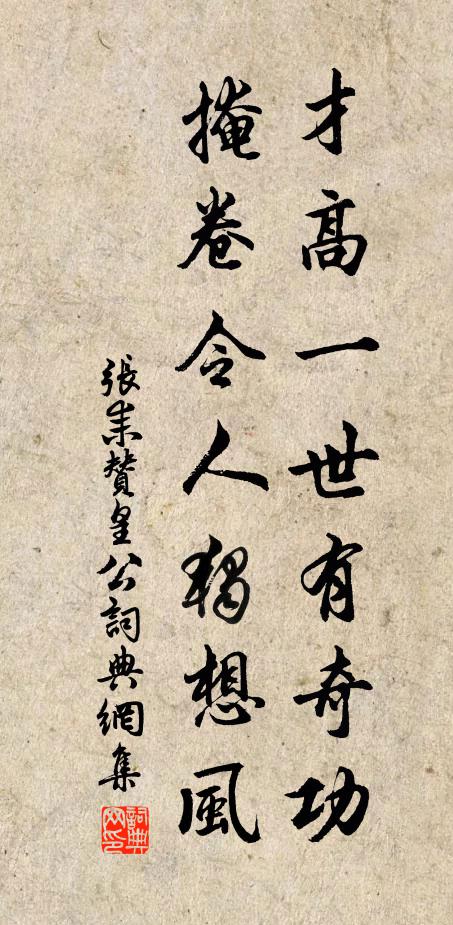 才高一世有奇功
掩卷令人獨想風
張耒贊皇公詞典網集
詞典網印